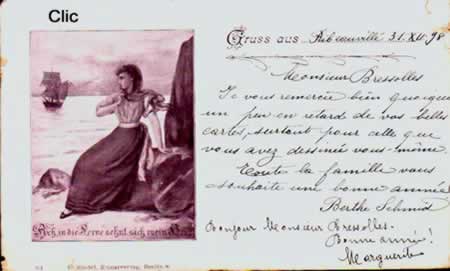 Clic
Gruss aus Ribeauvillé 31.XII.98
Monsieur Bressolles
Je vous remercie bien quoique
un peu en retard de vos belles
cartes, surtout pour celle que
vous avez dessinée vous-même.
Toute la famille vous
souhaite une bonne année
Berthe Schmid
Bonjour Monsieur Bressolles.
Bonne année!
Marguerite
Ach, in die Ferne sehnt sich mein Herz!
Kunstverlag, Berlin